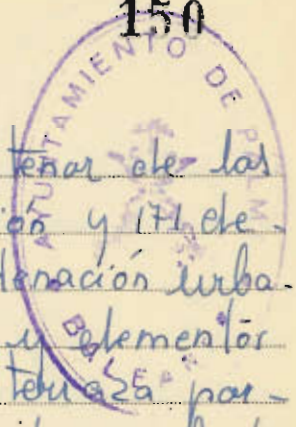 150
AYUNTAMIENTO DE PALM
BALEAR
tenor de los
ción y 171 de-
denación urba-
y elementos
terraza par-